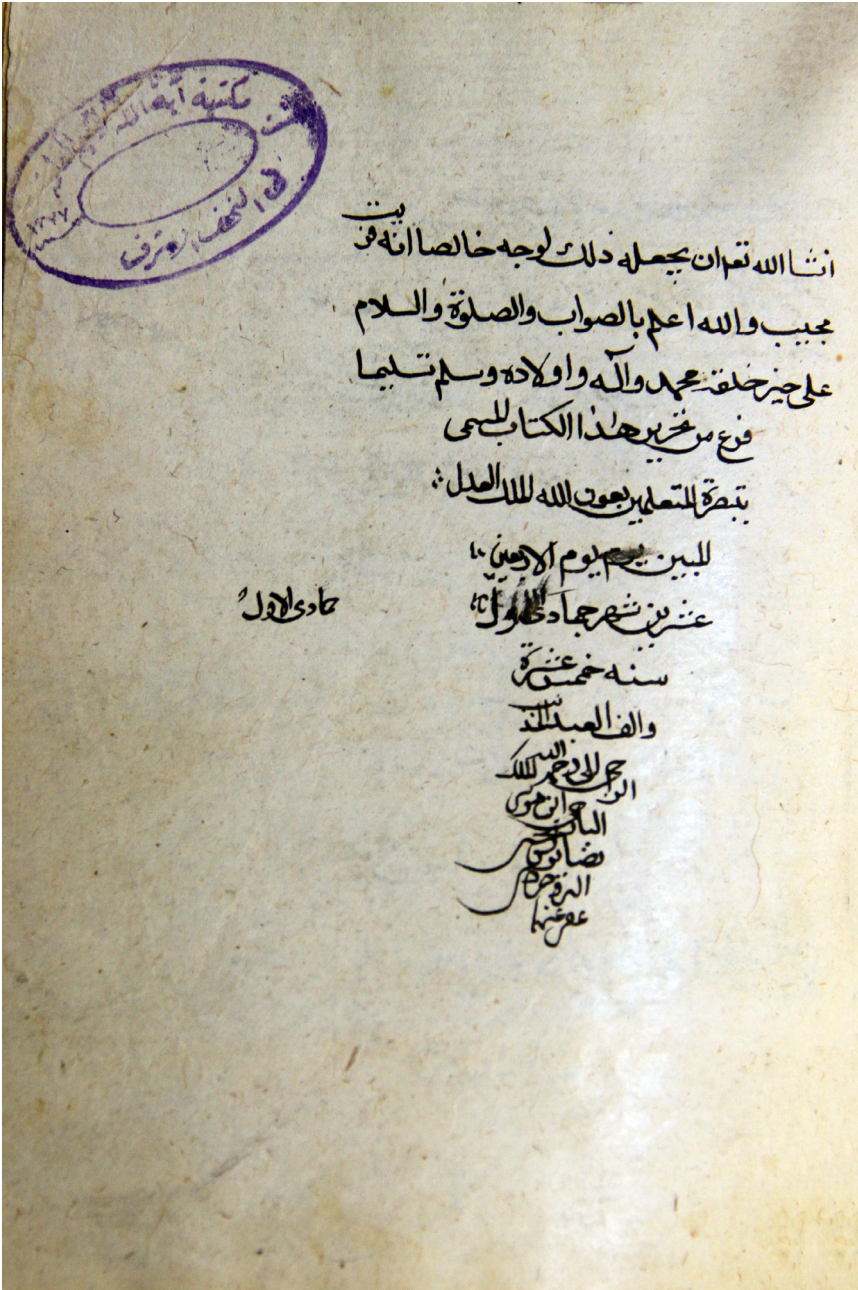 مكتبة آية الله
النجف الاشرف
انشا الله تعم ان يجعله ذلك لوجه خالصا انه قريب
مجيب والله اعلم بالصواب والصلوة والسلام
على خير خلقه محمد وآله واولاده وسلم تسليما
فرغ من تحرير هذا الكتاب المسمى
بتبصرة المتعلمين بعون الله الملك العدل
المبين يوم يوم الاربعين
عشرين شهر جمادى الاول
جمادى الاول
سنه خمس عشرة
والف العبد
الراجى الى رحمة الله الملك
عفى عنهما